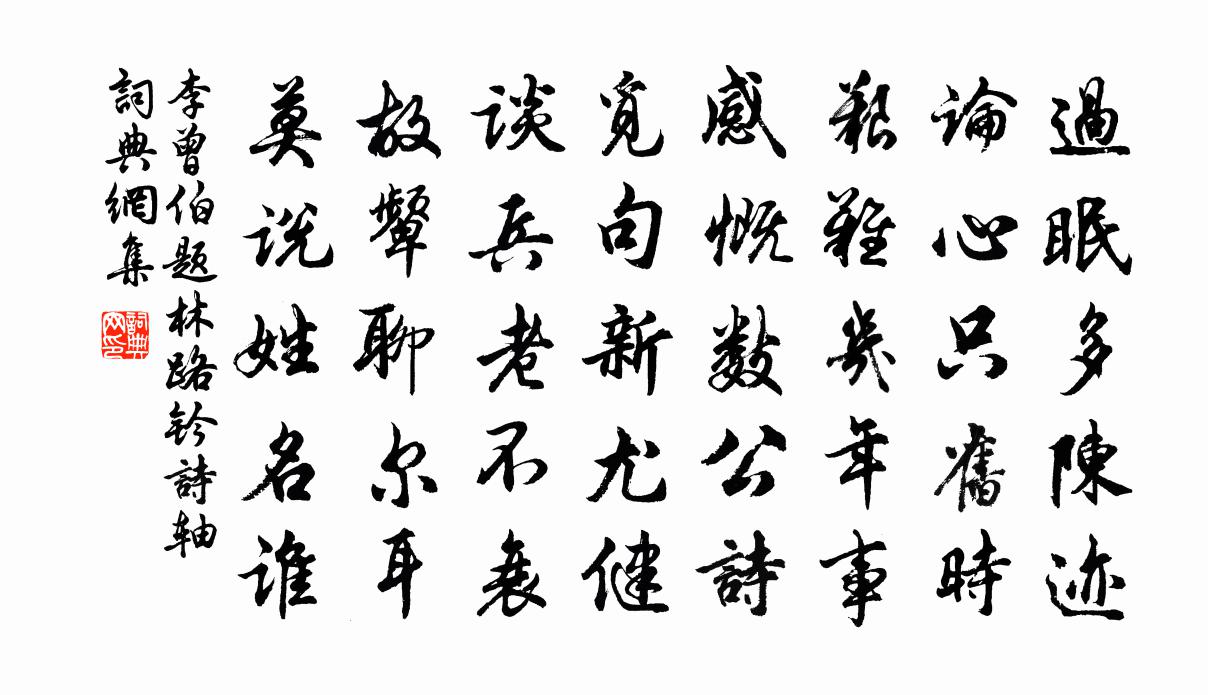 過眠多陳迹
論心只舊時
艱難幾年事
感慨數公詩
覓句新尤健
談兵老不衰
故顰聊尔耳
莫说姓名谁
李曾伯题林路鈐詩轴
詞典網集
詞典网印